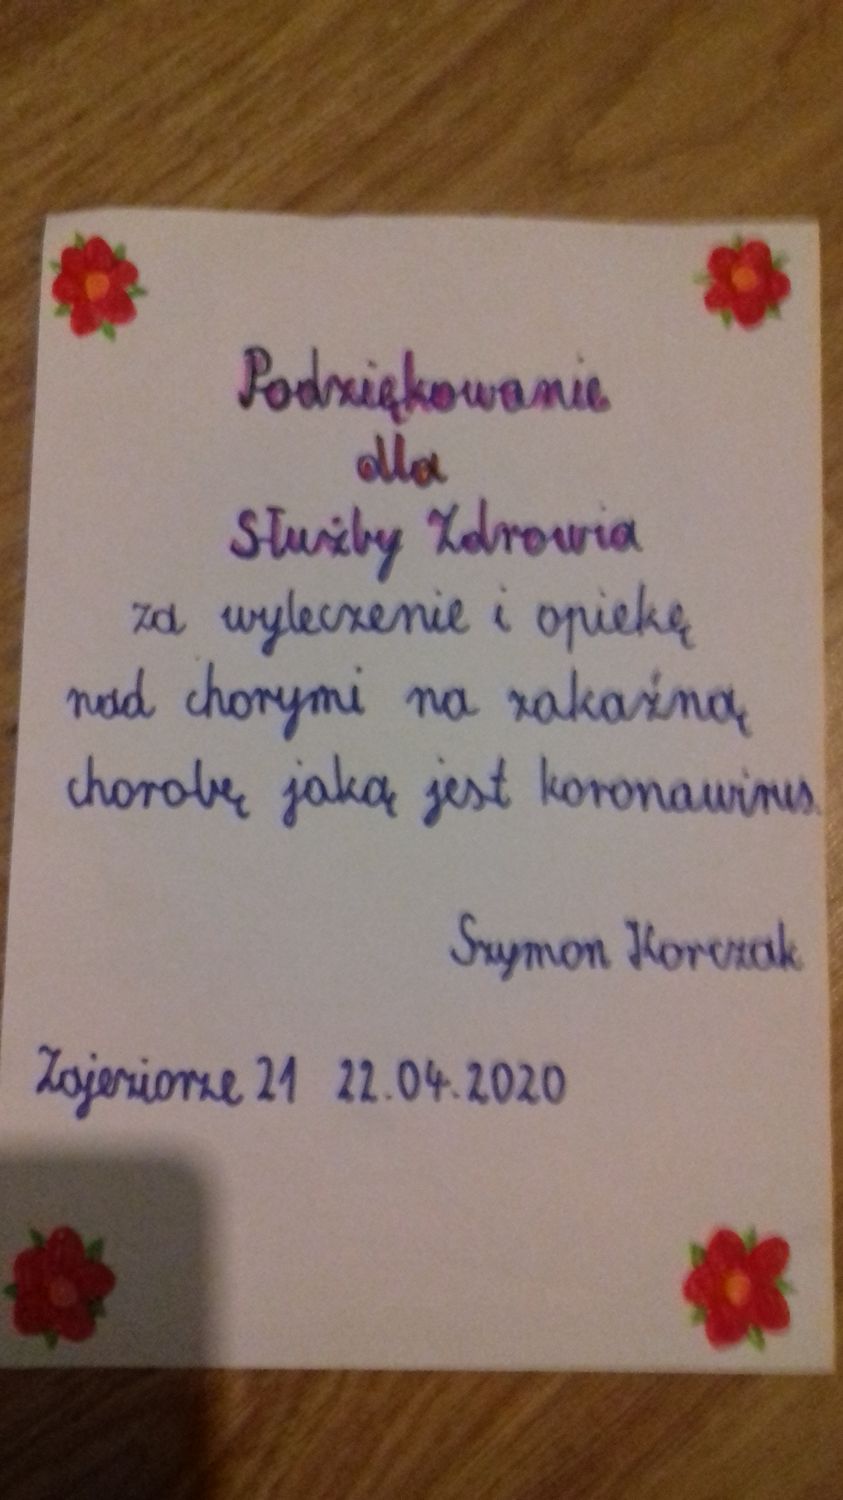 Podziękowanie
dla
Służby Zdrowia
za wyleczenie i opiekę
nad chorymi na zakaźną
chorobę jaką jest koronawirus.
Szymon Korczak
Zajeziorze 21 22.04.2020